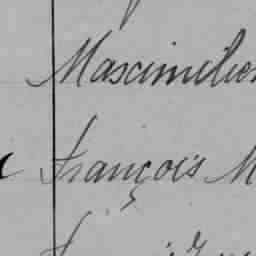 Maximilien
François M